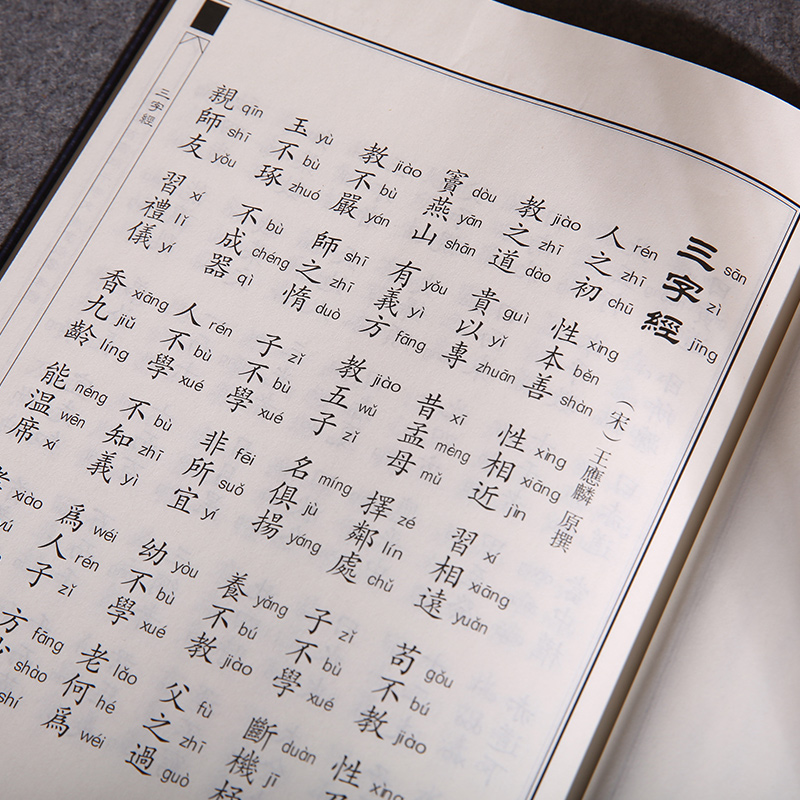 三字經
sān zì jīng
（宋）王應麟 原撰
人之初 性本善 性相近 習相遠 苟不教 性
rén zhī chū xìng běn shàn xìng xiāng jìn xí xiāng yuǎn gǒu bú jiào xìng
教之道 貴以專 昔孟母 擇鄰處 子不學 斷機杼
jiào zhī dào guì yǐ zhuān xī mèng mǔ zé lín chǔ zǐ bù xué duàn jī
竇燕山 有義方 教五子 名俱揚 養不教 父之過
dòu yān shān yǒu yì fāng jiào wǔ zǐ míng jù yáng yǎng bú jiào fù zhī guò
教不嚴 師之惰 子不學 非所宜 幼不學 老何為
jiào bù yán shī zhī duò zǐ bù xué fēi suǒ yí yòu bù xué lǎo hé wéi
玉不琢 不成器 人不學 不知義 為人子 方少
yù bù zhuó bù chéng qì rén bù xué bù zhī yì wéi rén zǐ fāng shào shí
親師友 習禮儀 香九齡 能溫席
qīn shī yǒu xí lǐ yí xiāng jiǔ líng néng wēn xí xiào yú
三字經